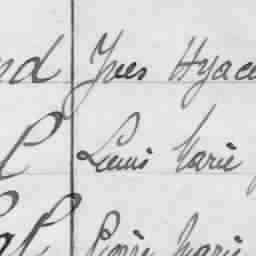 nd Yves Hyac
l Louis Marie
al Pierre Marie